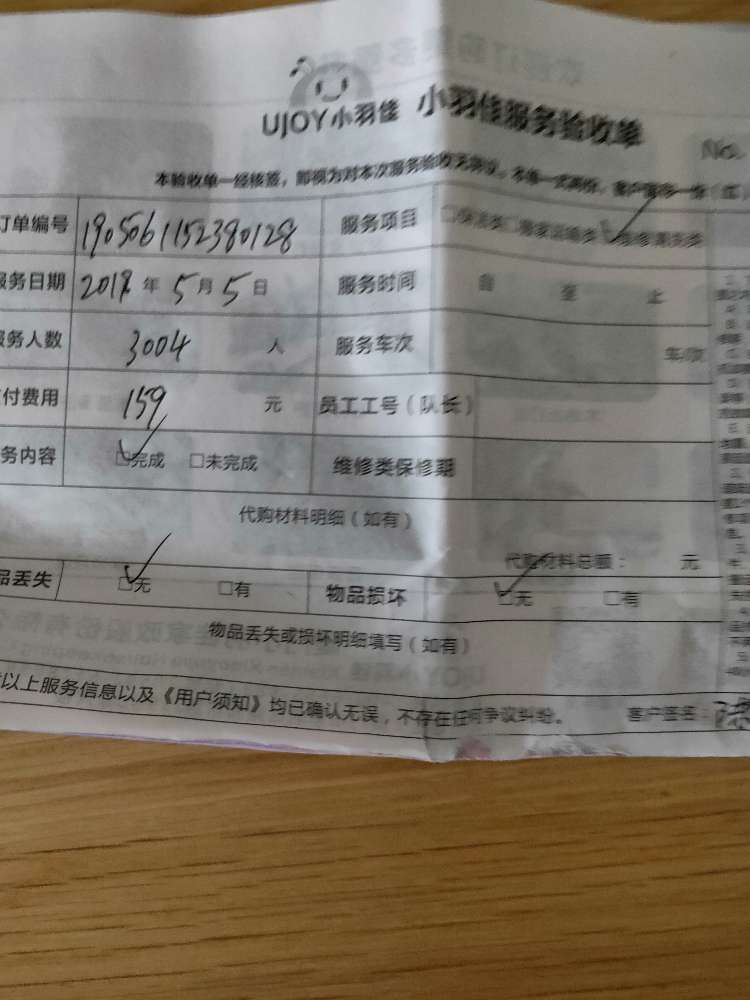 UJOY小羽佳 小羽佳服务验收单
No.
本验收单一经核签，即视为对本次服务验收无异议。本单一式两份，客户留存一份（红）
订单编号 1905061152380128 服务项目 □保洁类□搬家运输类□维修清洗类
服务日期 2019年5月5日 服务时间 自 至 止
服务人数 3004 人 服务车次 车/次
付费用 159 元 员工工号（队长）
务内容 □完成 □未完成 维修类保修期
代购材料明细（如有）
代购材料总额： 元
品丢失 □无 □有 物品损坏 □无 □有
物品丢失或损坏明细填写（如有）
以上服务信息以及《用户须知》均已确认无误，不存在任何争议纠纷。 客户签名：陈